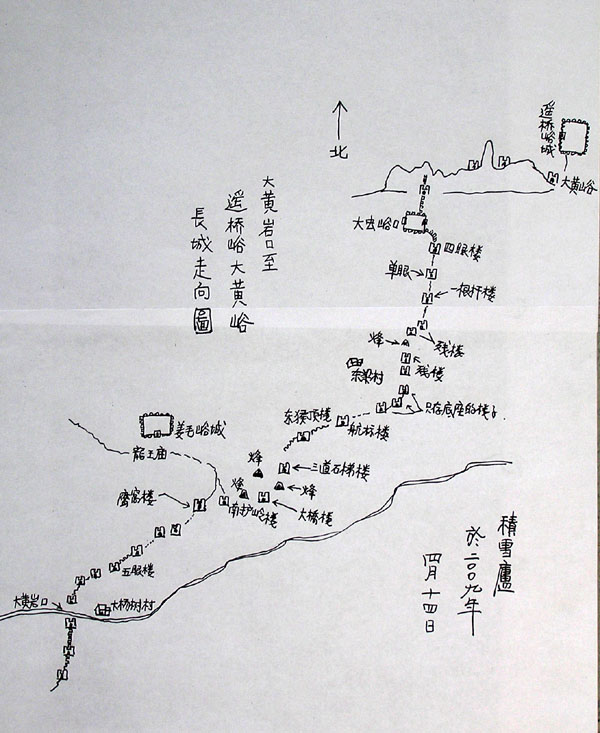 大黄岩口至
遥桥峪大黄峪
長城走向圖
北
遥桥峪城
大黄峪
大虫峪口
四眼楼
单眼
一根杆楼
残楼
烽
残楼
东梁村
只存底座的楼
航标楼
东猴顶楼
姜毛峪城
三道石梯楼
烽
烽
烽
大橋楼
南护峪楼
五眼楼
大黄岩口
大杨树村
積雪廬
於二00九年
四月十四日